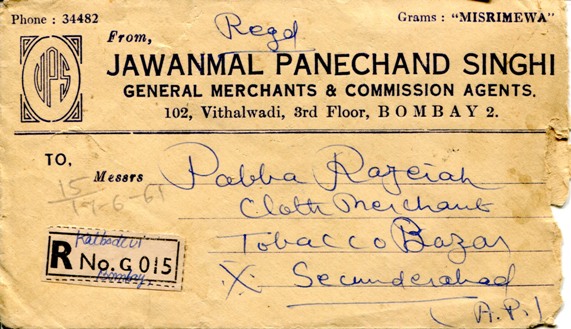 Phone : 34482
Grams : "MISRIMEWA"
Regd
From,
JPS
JAWANMAL PANECHAND SINGHI
GENERAL MERCHANTS & COMMISSION AGENTS.
102, Vithalwadi, 3rd Floor, BOMBAY 2.
TO,
Messrs Pabba Rajeiah
Cloth Merchant
15
17-6-61
Tobacco Bazar
Kalbadevi
R No. G 015
Bombay
X Secunderabad
(A.P.)